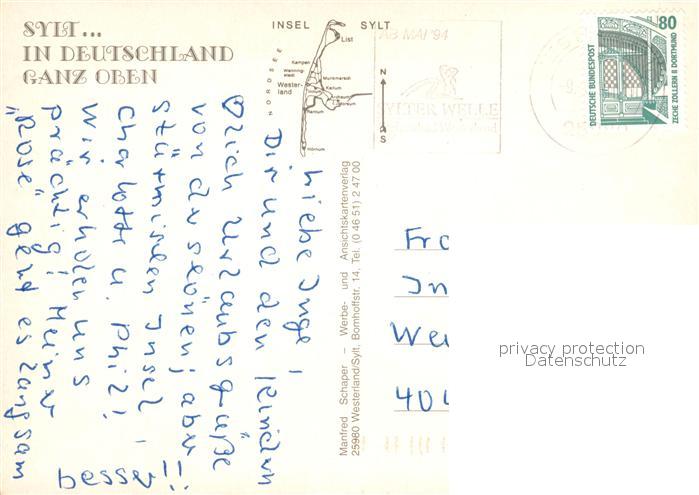 SYLT...
IN DEUTSCHLAND
GANZ OBEN
INSEL SYLT
NORDSEE
List
Kampen
Wenning-
stedt
Munkmarsch
Wester-
land
Keitum
Archsum
Morsum
Rantum
Hörnum
N
S
AB MAI '94
SYLTER WELLE
80
DEUTSCHE BUNDESPOST
ZECHE ZOLLERN II DORTMUND
Liebe Inge,
Dir und den Kindern
Urlaubsgrüße
von der schönen, aber
stürmischen Insel,
Charlotte u. Phil!
Wir erholen uns
prächtig! Meiner
"Rose" geht es langsam
besser!!
Manfred Schaper – Werbe- und Ansichtskartenverlag
25980 Westerland/Sylt, Bomhoffstr. 14, Tel. (0 46 51) 2 47 00
Fr
In
We
40
privacy protection
Datenschutz